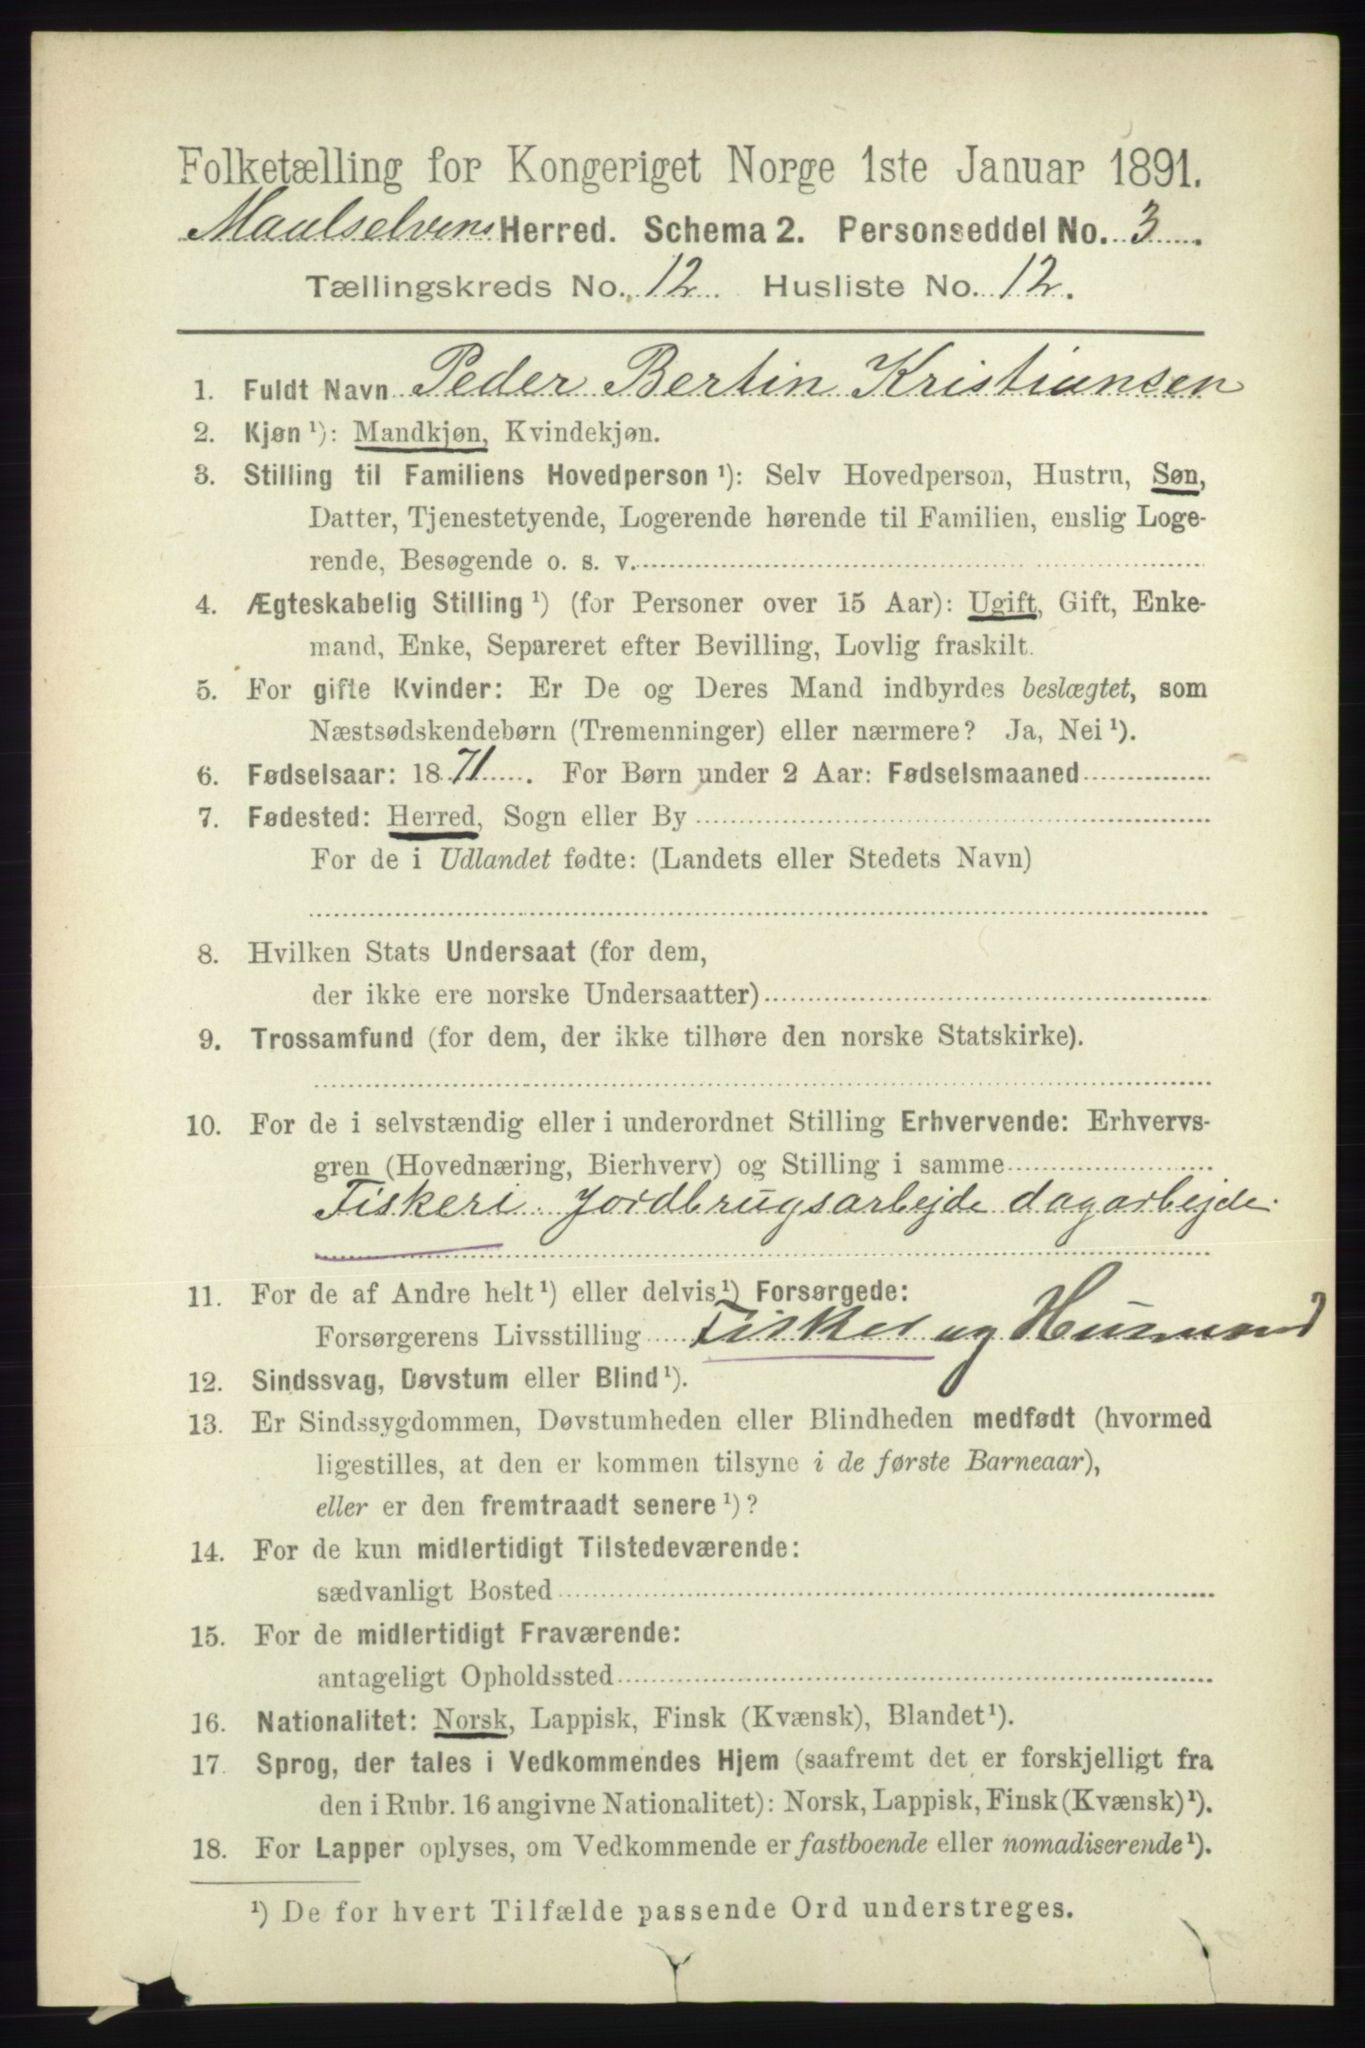 Folketælling for Kongeriget Norge 1ste Januar 1891.
Maalselvens Herred. Schema 2. Personseddel No. 3.
Tællingskreds No. 12. Husliste No. 12.
1. Fuldt Navn Peder Bertin Kristiansen
2. Kjøn ¹): Mandkjøn, Kvindekjøn.
3. Stilling til Familiens Hovedperson ¹): Selv Hovedperson, Hustru, Søn,
Datter, Tjenestetyende, Logerende hørende til Familien, enslig Loge-
rende, Besøgende o. s. v.
4. Ægteskabelig Stilling ¹) (for Personer over 15 Aar): Ugift, Gift, Enke-
mand, Enke, Separeret efter Bevilling, Lovlig fraskilt.
5. For gifte Kvinder: Er De og Deres Mand indbyrdes beslægtet, som
Næstsødskendebørn (Tremenninger) eller nærmere? Ja, Nei ¹).
6. Fødselsaar: 1871. For Børn under 2 Aar: Fødselsmaaned
7. Fødested: Herred, Sogn eller By
For de i Udlandet fødte: (Landets eller Stedets Navn)
8. Hvilken Stats Undersaat (for dem,
der ikke ere norske Undersaatter)
9. Trossamfund (for dem, der ikke tilhøre den norske Statskirke).
10. For de i selvstændig eller i underordnet Stilling Erhvervende: Erhvervs-
gren (Hovednæring, Bierhverv) og Stilling i samme
Fiskeri. Jordbrugsarbejde dagarbejde.
11. For de af Andre helt ¹) eller delvis ¹) Forsørgede:
Forsørgerens Livsstilling Fisker og Husmand
12. Sindssvag, Døvstum eller Blind ¹).
13. Er Sindssygdommen, Døvstumheden eller Blindheden medfødt (hvormed
ligestilles, at den er kommen tilsyne i de første Barneaar),
eller er den fremtraadt senere ¹)?
14. For de kun midlertidigt Tilstedeværende:
sædvanligt Bosted
15. For de midlertidigt Fraværende:
antageligt Opholdssted
16. Nationalitet: Norsk, Lappisk, Finsk (Kvænsk), Blandet ¹).
17. Sprog, der tales i Vedkommendes Hjem (saafremt det er forskjelligt fra
den i Rubr. 16 angivne Nationalitet): Norsk, Lappisk, Finsk (Kvænsk) ¹).
18. For Lapper oplyses, om Vedkommende er fastboende eller nomadiserende ¹).
¹) De for hvert Tilfælde passende Ord understreges.